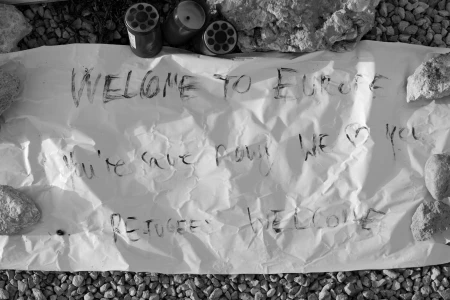 WELCOME TO EUROPE
You're save now WE ♡ YOU
REFUGEES WELCOME